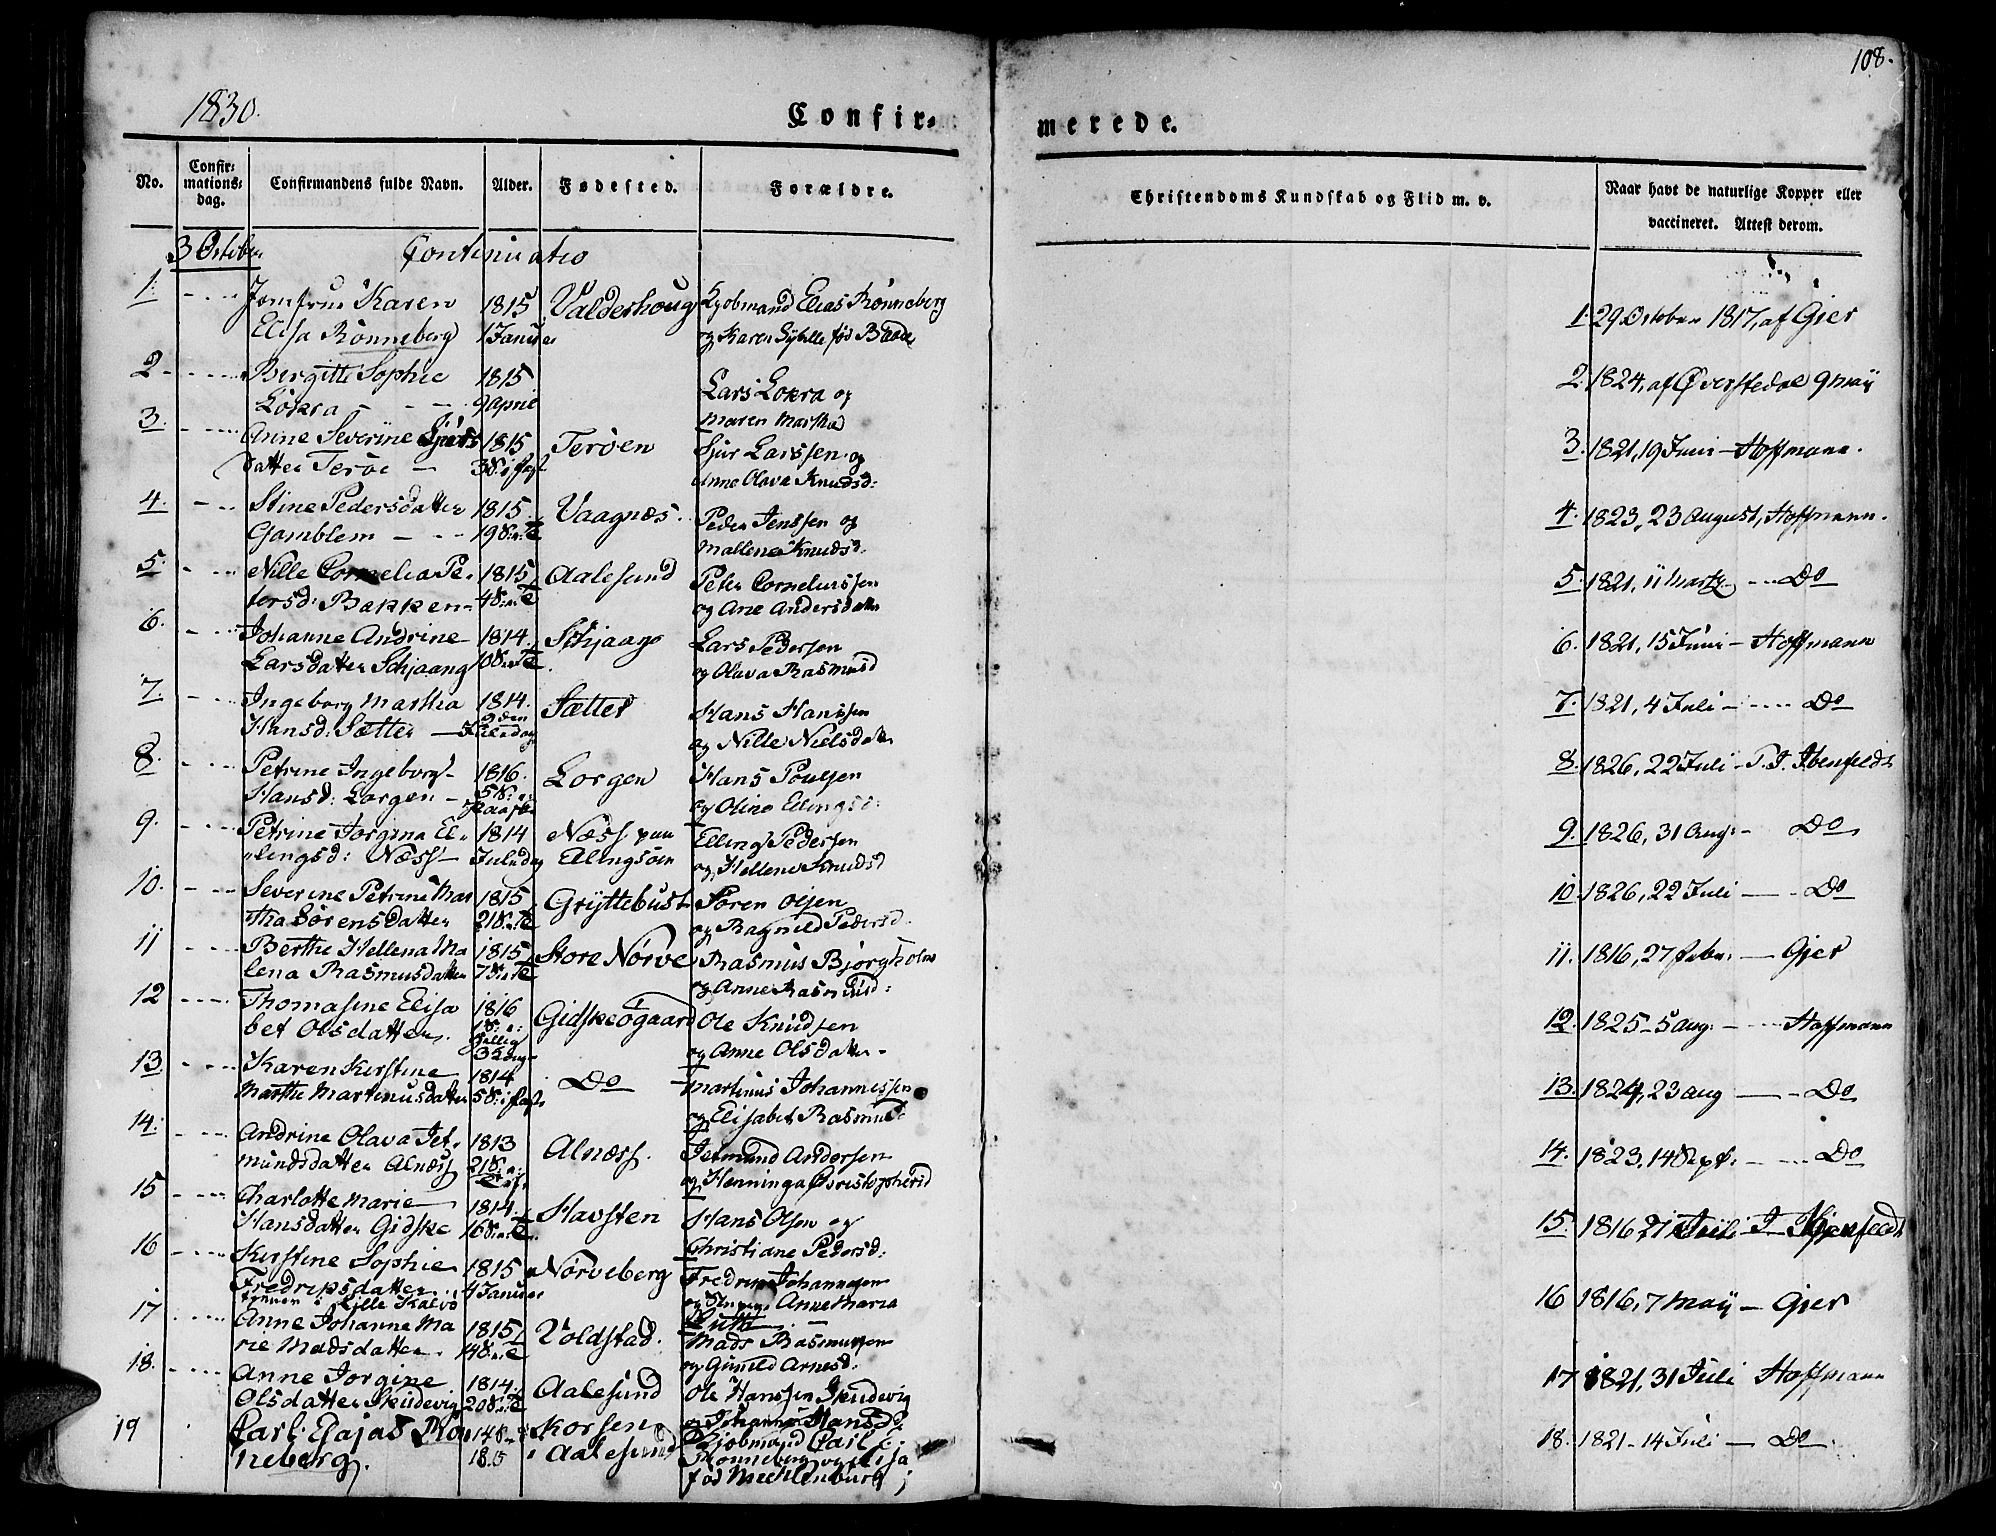 108.
1830.
Confir=
merede.
No.
Confir=
mations=
dag.
Confirmandens fulde Navn.
Alder.
Fødested.
Forældre.
Christendoms Kundskab og Flid m. v.
Naar havt de naturlige Kopper eller
vaccineret. Attest derom.
3 October
Continuatio
1. Jomfrue Karen 1815 Valderhoug Kjøbmand Elias Rønneberg
Elisa Rønneberg 1 Januar og Karen Sybille fød Baade
2 Birgitte Sophie 1815 Lars Lokra og
Lokra 9 April Maren Martha
3. Anne Severine Sjurs 1815 Terøen Sjur Larssen og
datter Terøe 3 S. i fast Anne Olava Knudsd:
4. Stine Pedersdatter 1815 Vaagnæs. Peder Jenssen og
Gamblem 19 S. Mallene Knudsd:
5. Nille Cornelia Pe- 1815 Aalesund Peter Corneliussen
tersd: Bakken 4 S. og Ane Andersdatter
6. Johanne Andrine 1814 Schjaang Lars Pedersen
Larsdatter Schjaang 10 S. og Olava Rasmusd
7. Ingeborg Martha 1814. Sætter Hans Hanssen
Hansd: Sætter 2den Juledag og Nille Nielsdatter
8. Petrine Ingeborg 1816. Lorgen Hans Poulsen
Hansd: Lorgen 5 S. e: Paaske og Oline Elingsd:
9. Petrine Jorgina El- 1814 Næss paa Elling Pedersen
lingsd: Næss Juledag Elingsøen og Hellene Knudsd
10. Severine Petrine Mar 1815 Gryttebust Søren Olsen
tha Sørensdatter 21 S. og Ragnild Pedersd.
11 Berthe Hellena Ma 1815 Store Nørve Rasmus Bjørgholm
lena Rasmusdatter 7 S. og Anne Rasmusd:
12 Thomasine Elisa 1816 Gidskeøgaard Ole Knudsen
bet Olsdatter. og Anne Olsdatter
13. Karen Kirstine 1814 Do Martinus Johannessen
Marthe Martinusdatter 5 S. i fast og Elisabet Rasmusd:
14. Andrine Olava Jet- 1813 Alnæss. Jetmund Andersen
mundsdatter Alnæss 21 S. e: og Henninga Christophersd
15 Charlotte Marie 1814. Havsten Hans Olsen og
Hansdatter Gidske 16 S. Christiane Pedersd:
16 Kirstine Sophie 1815 Nørveberg Fredrik Johannesen
Fredriksdatter 4 Januar og Anne Maria
Lille Kalvø
17. Anne Johanne Ma 1815 Voldstad. Mads Rasmussen
rie Madsdatter 14 S. og Gunild Arnesd:
18. Anne Jorgine 1814. Aalesund Ole Hanssen Skudevig
Olsdatter Skudevig 20 S. og Johanne Hansd:
19 Carl Esajas Røn 14 S. Korsen Kjøbmand Carl
neberg. i Aalesund Rønneberg og Elisa
fød Mechlenburg
1. 29 October 1817, af Gjer
2. 1824, af Øverstedal 9 May
3. 1821, 19 Juni - Hoffmann.
4. 1823, 23 August, Hoffmann.
5. 1821, 11 Martz - Do
6. 1821, 15 Juni - Hoffmann
7. 1821, 4 Juli - Do
8. 1826, 22 Juli - P. J. Ibenfeldt
9. 1826, 31 Aug: - Do
10. 1826, 22 Juli - Do
11. 1816, 27 Febr: - Gjer
12. 1825 - 5 Aug: - Hoffmann
13. 1824, 23 Aug - Do
14. 1823, 14 Sept: - Do
15. 1816, 21 Juli
16 1816, 7 May - Gjer
17 1821, 31 Juli Hoffmann
18. 1821 - 14 Juli - Do.